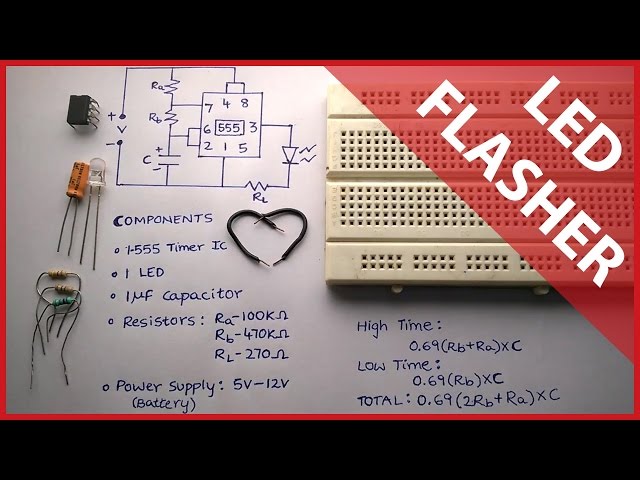 LED
FLASHER
Ra
7 4 8
+
V
-
Rb
6 555 3
2 1 5
C
+
-
RL
COMPONENTS
1-555 Timer IC
1 LED
1µF Capacitor
Resistors: Ra-100KΩ
Rb-470KΩ
RL-270Ω
Power Supply: 5V-12V
(Battery)
High Time:
0.69(Rb+Ra)XC
Low Time:
0.69(Rb)XC
TOTAL: 0.69(2Rb+Ra)XC